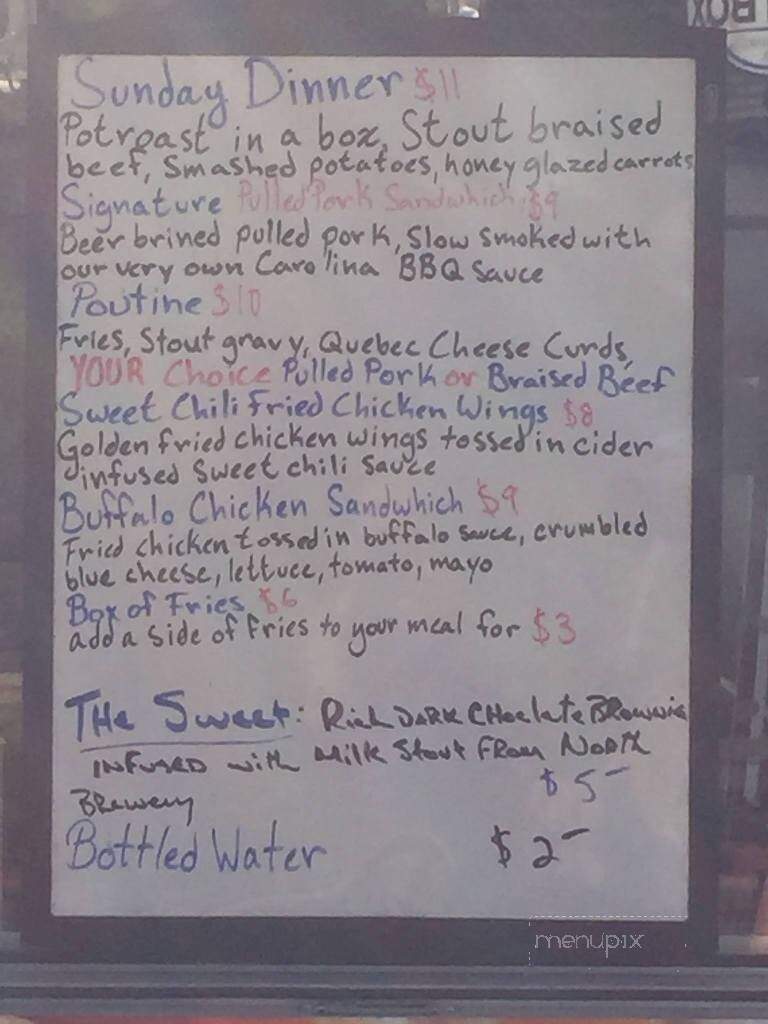 BOX
Sunday Dinner $11
Potroast in a box, Stout braised
beef, Smashed potatoes, honey glazed carrots
Signature Pulled Pork Sandwhich $9
Beer brined pulled pork, Slow smoked with
our very own Carolina BBQ Sauce
Poutine $10
Fries, Stout gravy, Quebec Cheese Curds,
YOUR Choice Pulled Pork or Braised Beef
Sweet Chili Fried Chicken Wings $8
Golden fried chicken wings tossed in cider
infused Sweet chili Sauce
Buffalo Chicken Sandwhich $9
Fried chicken tossed in buffalo sauce, crumbled
blue cheese, lettuce, tomato, mayo
Box of Fries $6
add a Side of Fries to your meal for $3
THe Sweet: Rich DARK CHoclate BRownie
INFUSED with Milk Stout From North
$5-
Brewery
Bottled Water $2-
menupix